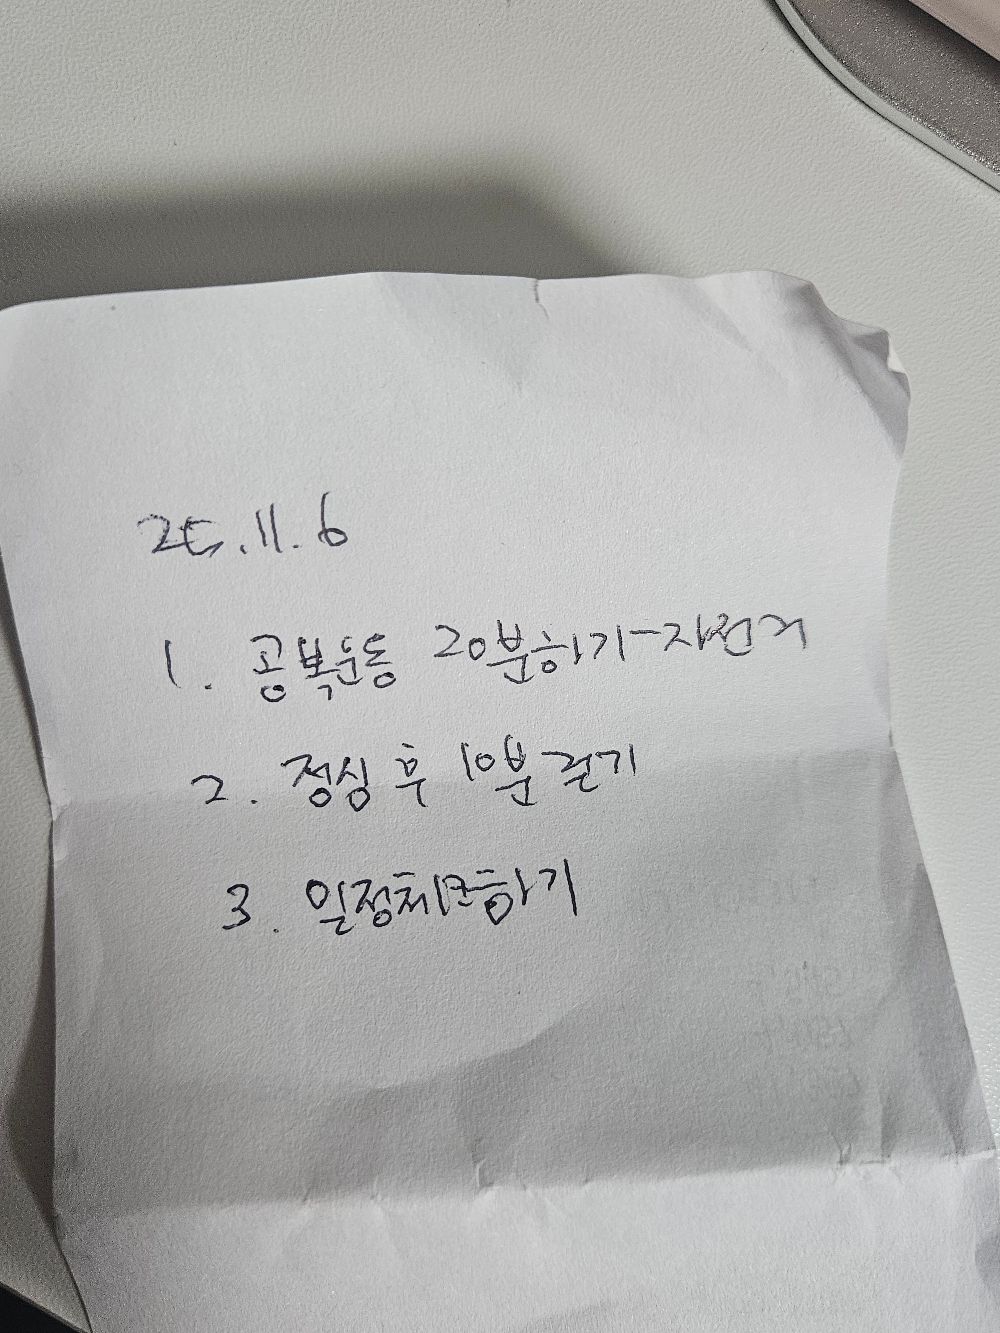 25.11.6
1. 공복운동 20분하기-자전거
2. 점심 후 10분 걷기
3. 일정체크하기